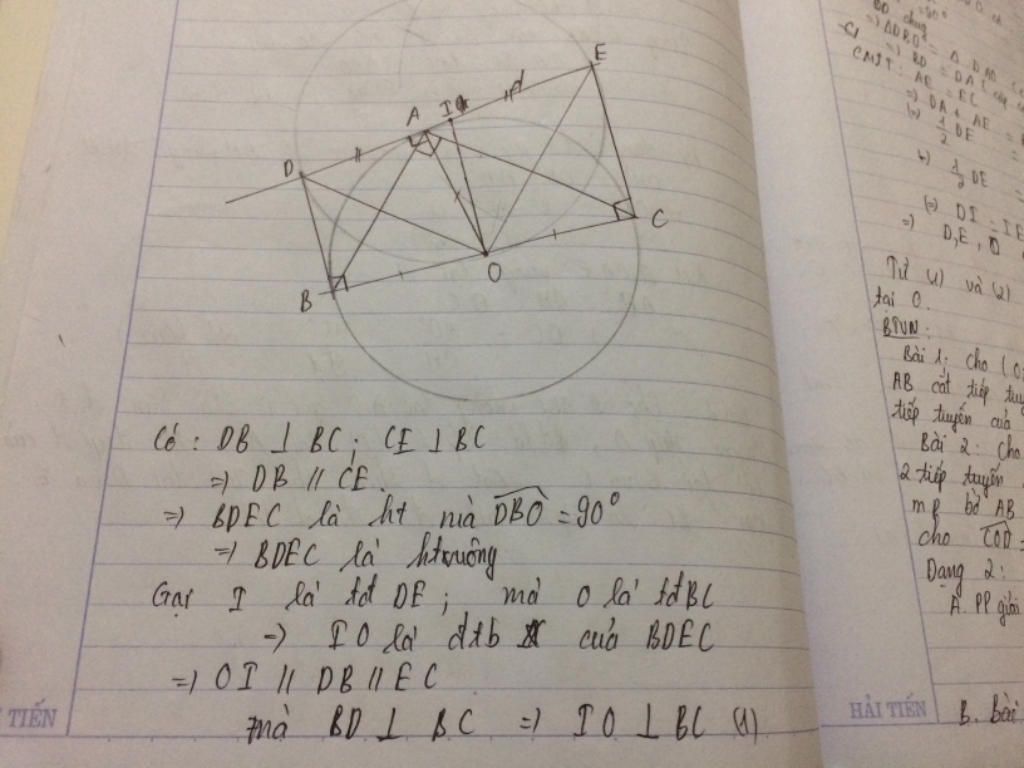 E
A
I
d
D
C
O
B
Có : DB ⊥ BC ; CE ⊥ BC
=> DB // CE.
=> BDEC là ht mà DBO = 90°
=> BDEC là htvuông
Gọi I là tđ DE ; mà O là tđ BC
=> IO là đtb của BDEC
=> OI // DB // EC
mà BD ⊥ BC => IO ⊥ BC (1)
TIẾN
CMTT : AE = EC
=> DA + AE =
1/2 DE
1/2 DE =
(=) DI = IE
=> D, E, O
Từ (1) và (2)
tại O.
BTVN:
Bài 1: cho (O;
AB cắt tiếp tuy
tiếp tuyến của
Bài 2: Cho
2 tiếp tuyến
mp bờ AB
cho COD =
Dạng 2:
A. PP giải
HẢI TIẾN
B. Bài